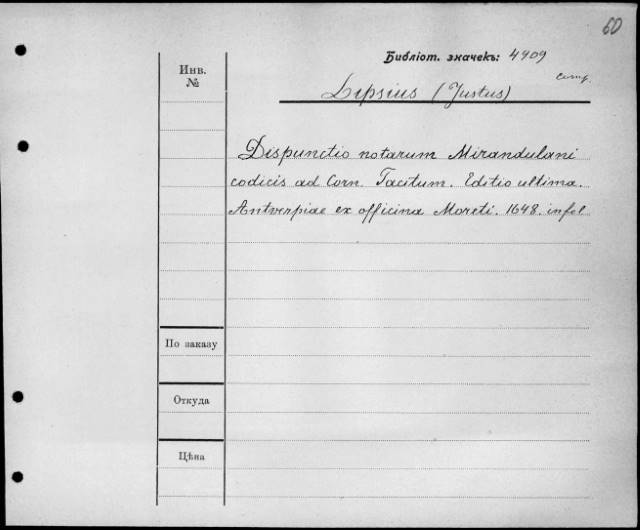 60
Библіот. значекъ: 4409
Инв.
№
Lipsius (Justus)
Dispunctio notarum Mirandulani
codicis ad Corn. Tacitum. Editio ultima.
Antverpiae ex officina Moreti. 1648. infol
По заказу
Откуда
Цѣна